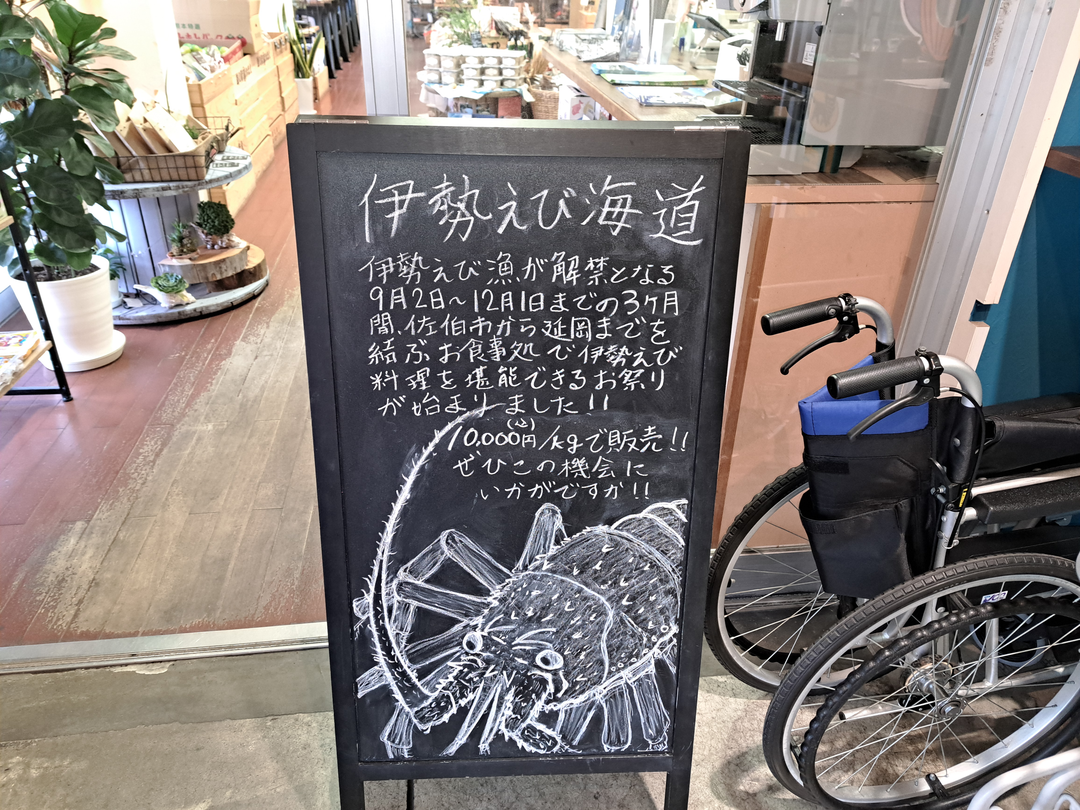 伊勢えび海道
伊勢えび漁が解禁となる
9月2日～12月1日までの3ヶ月
間、佐伯市から延岡までを
結ぶお食事処で伊勢えび
料理を堪能できるお祭り
が始まりました!!
(込)
10,000円/kgで販売!!
ぜひこの機会に
いかがですか!!